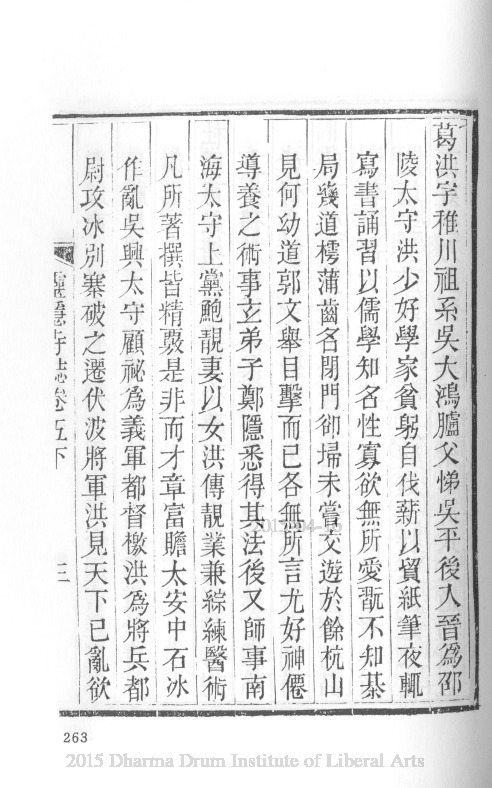 葛洪字稚川祖系吳大鴻臚父悌吳平後入晉爲邵
陵太守洪少好學家貧躬自伐薪以貿紙筆夜輒
寫書誦習以儒學知名性寡欲無所愛翫不知棊
局幾道樗蒲齒名閉門卻埽未嘗交遊於餘杭山
見何幼道郭文舉目擊而已各無所言尤好神僊
導養之術事玄弟子鄭隱悉得其法後又師事南
海太守上黨鮑靚妻以女洪傳靚業兼綜練醫術
凡所著撰皆精覈是非而才章富贍太安中石冰
作亂吳興太守顧祕爲義軍都督檄洪爲將兵都
尉攻冰別寨破之遷伏波將軍洪見天下已亂欲
靈隱寺誌卷五下
263
2015 Dharma Drum Institute of Liberal Arts